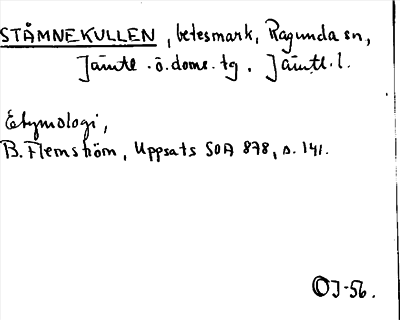 STÄMNEKULLEN, betesmark, Ragunda sn,
Jämtl. ö. doms. tg. Jämtl. l.
Etymologi,
B. Flemström, Uppsats SOA 878, s. 141.
OJ-56.